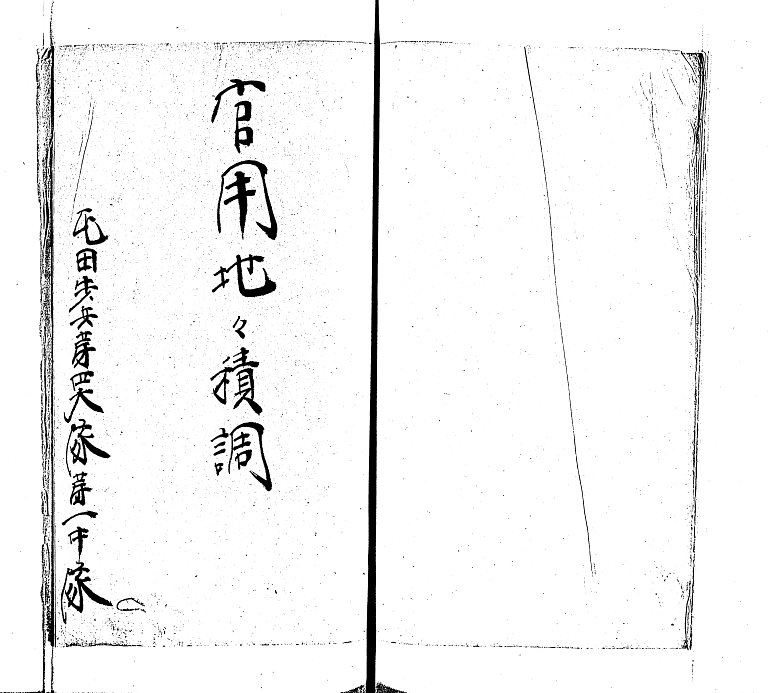 官用地々積調
屯田歩兵第四大隊第一中隊